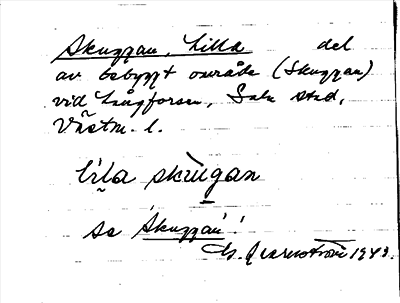 Skuggan, Lilla del
av bebyggt område (Skuggan)
vid Långforsen, Sala stad,
Västm. l.
lila skugan
se Skuggan!
1943.